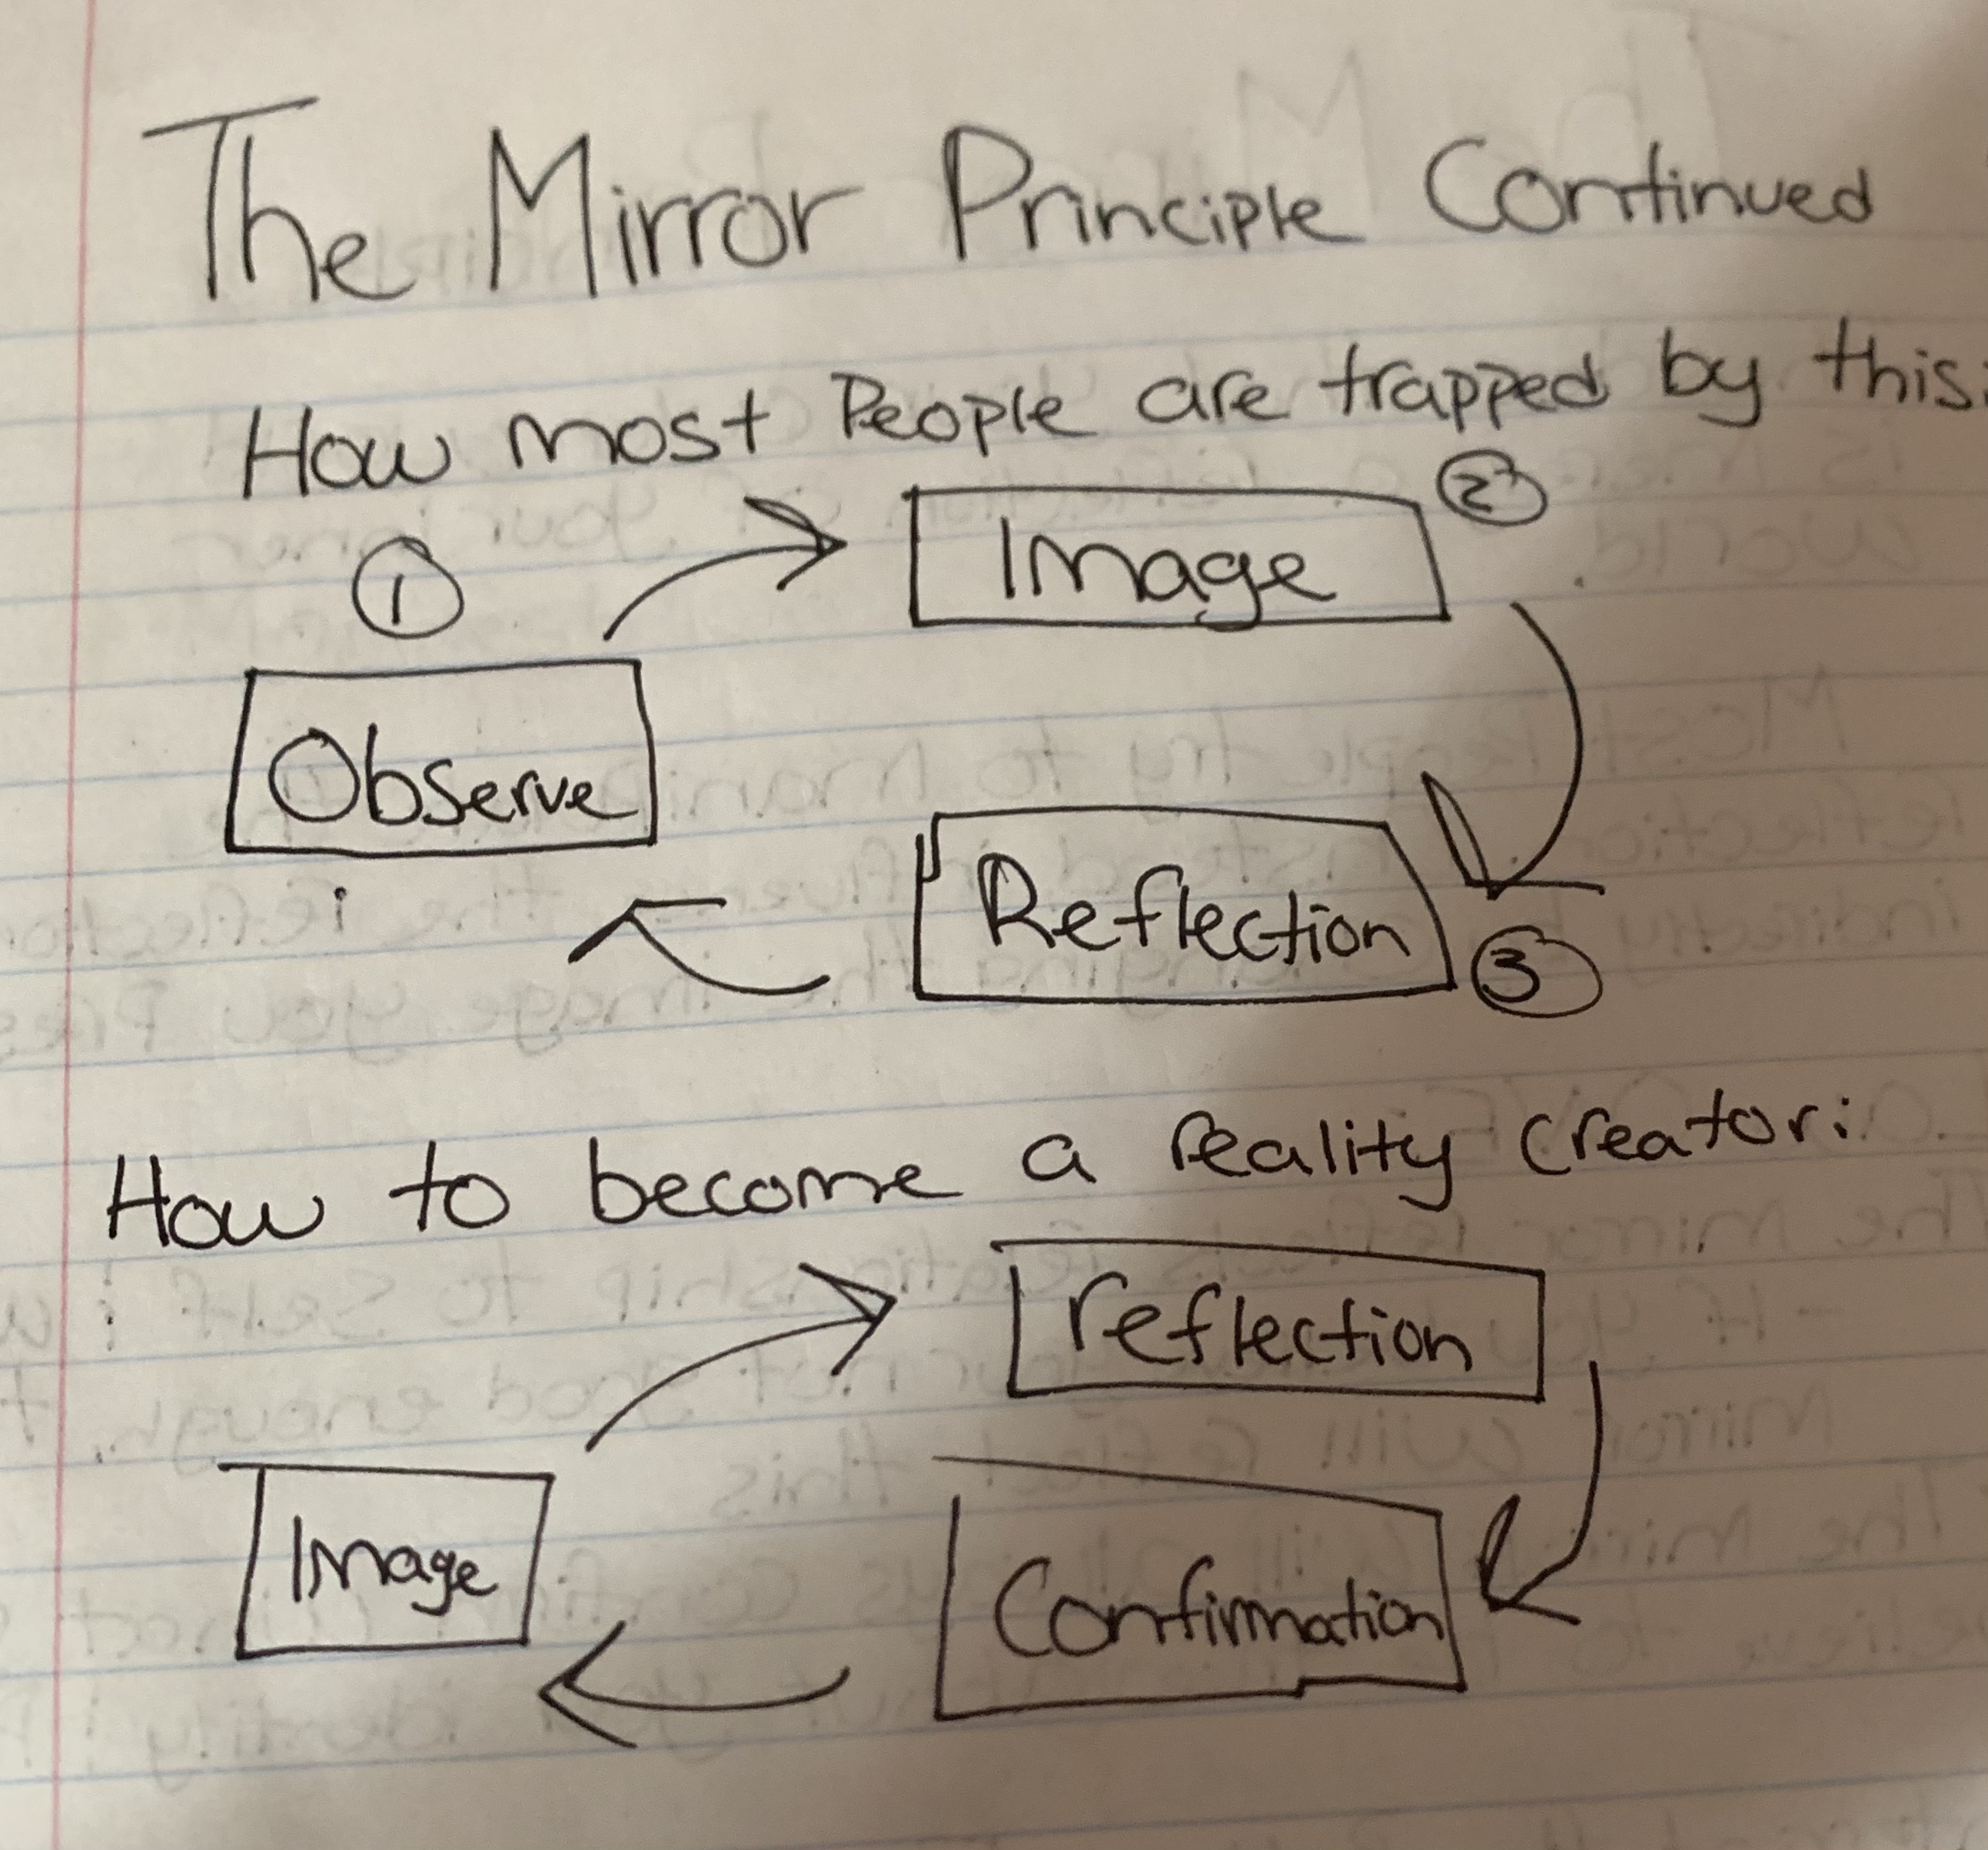 The Mirror Principle Continued
How most People are trapped by this:
①
Image
②
Observe
Reflection
③
How to become a reality creator:
reflection
Image
Confirmation